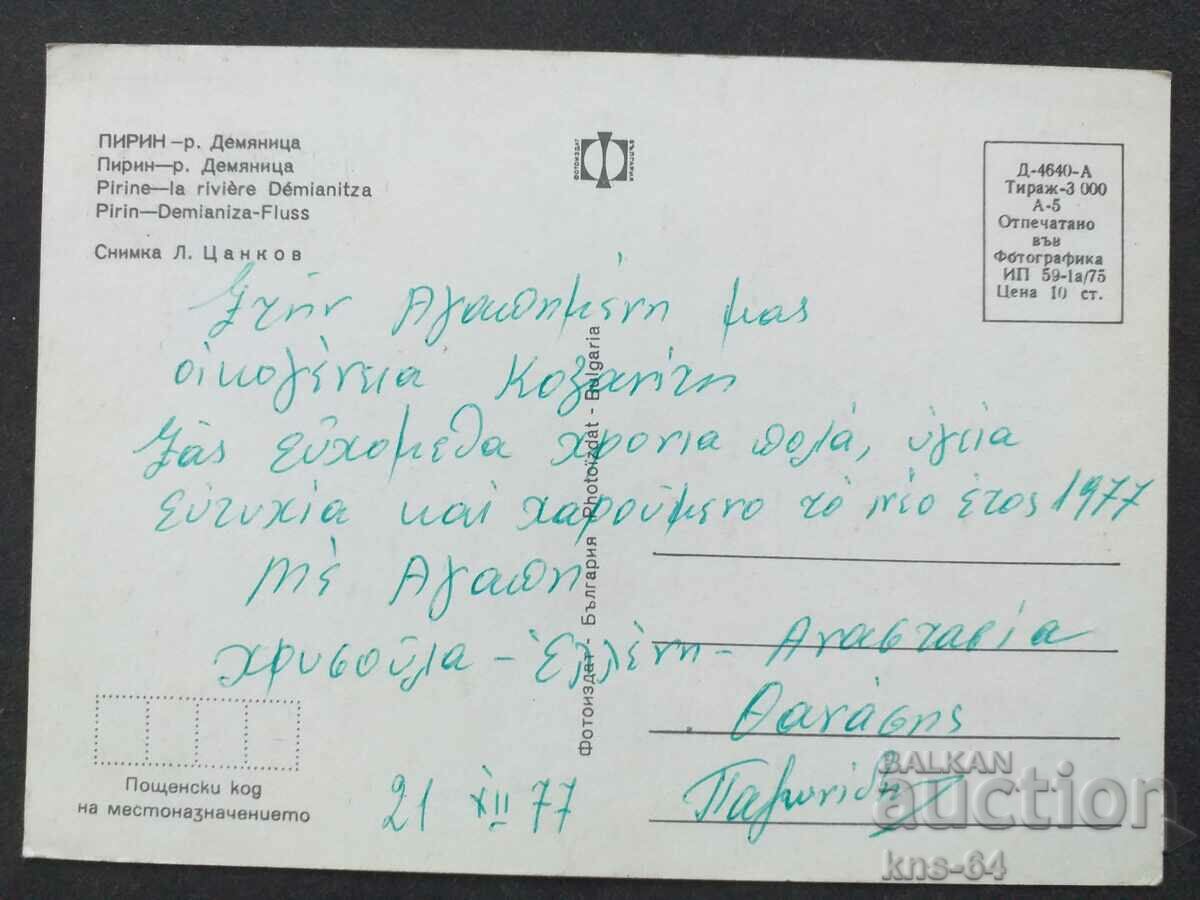 ПИРИН –р. Демяница
Пирин—р. Демяница
Pirine—la rivière Démianitza
Pirin—Demianiza-Fluss
Снимка Л. Цанков
ФОТОИЗДАТ
БЪЛГАРИЯ
Д-4640-А
Тираж-3 000
А-5
Отпечатано
във
Фотографика
ИП 59-1а/75
Цена 10 ст.
Στήν Αγαπημένη μας
οἰκογένεια Κοζανίτη
Σᾶς εὔχομεθα χρονια πολά, ὑγεία
εὐτυχία και χαρούμενο τό νέο ἔτος 1977
Μέ Αγαπη
Χρυσούλα – Ἑλλένη – Αναστασία
Θανάσης
21 XII 77
Фотоиздат - България Photoïzdat - Bulgaria
Пощенски код
на местоназначението
BALKAN
auction
kns-64